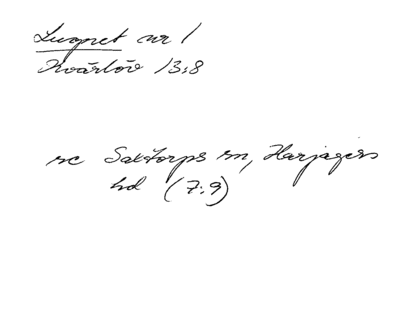 Lugnet nr 1
Kvärlöv 13:8
se Saxtorps sn, Harjagers
hd (7:9)